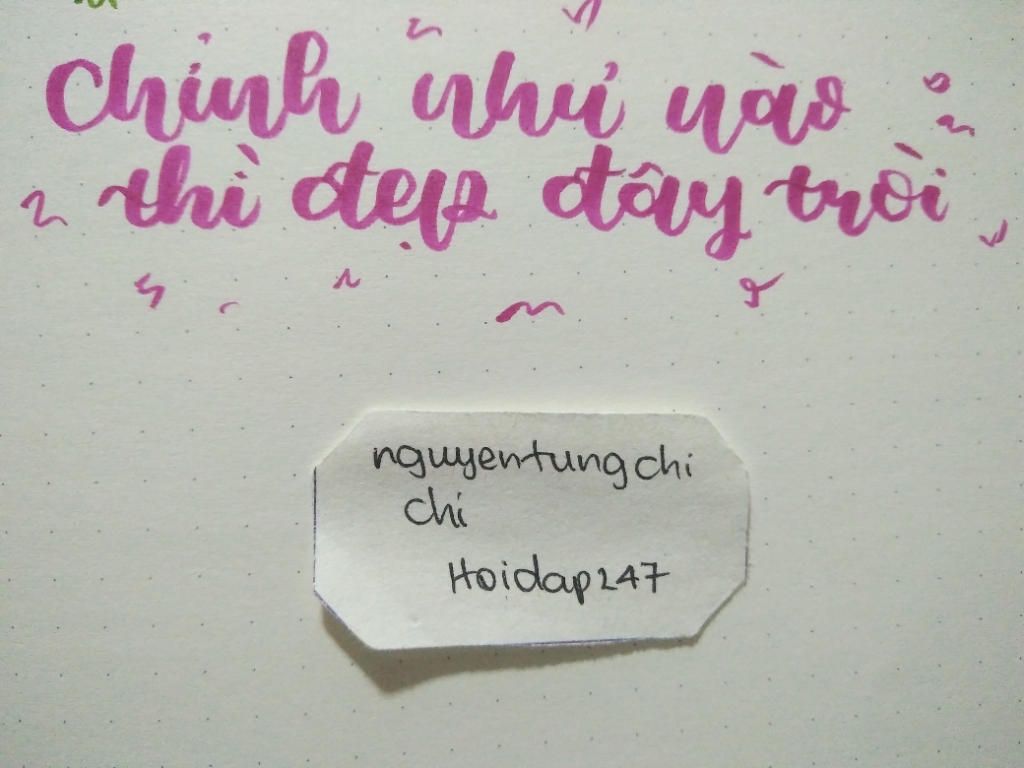 Chỉnh như nào
thì đẹp đây trời
nguyentungchi
chi
Hoidap247